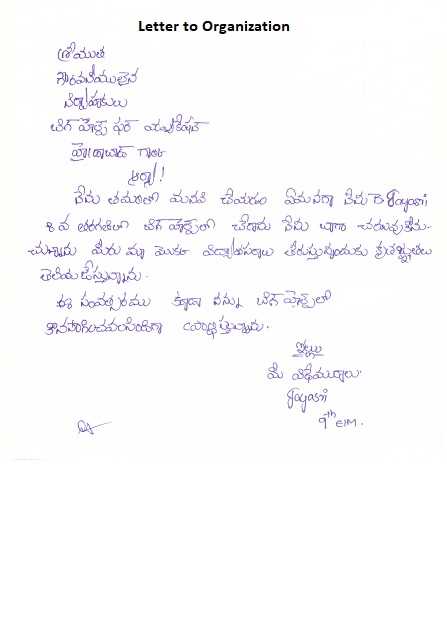 Letter to Organization
శ్రీయుత
గౌరవనీయులైన
నిర్వాహకులు
బిగ్ హెల్ప్ ఫర్ ఎడ్యుకేషన్
హైదరాబాద్ గారికి
ఆర్యా!
నేను తమరితో మనవి చేయడం ఏమనగా నేను R. Jayasri
8 వ తరగతిలో బిగ్ హెల్ప్‌లో చేరాను నేను బాగా చదువుకొను-
చున్నాను మీరు మా యొక్క విద్యావసరాలు తీరుస్తున్నందుకు కృతజ్ఞతలు
తెలియజేస్తున్నాను.
ఈ సంవత్సరము కూడా నన్ను బిగ్ హెల్ప్‌లో
కొనసాగించవలసిందిగా ప్రార్థిస్తున్నాను.
ఇట్లు
మీ విధేయురాలు.
Jayasri
9th EIM.